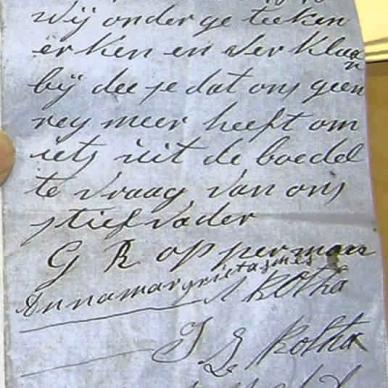 Wij onder ge teeken
erken en ver klaar
bij dee se dat ons geen
reg meer heeft om
iets uit de boedel
te vraag van ons
stief vader
G R opperman
Annamargrieta
Botha
J L Botha